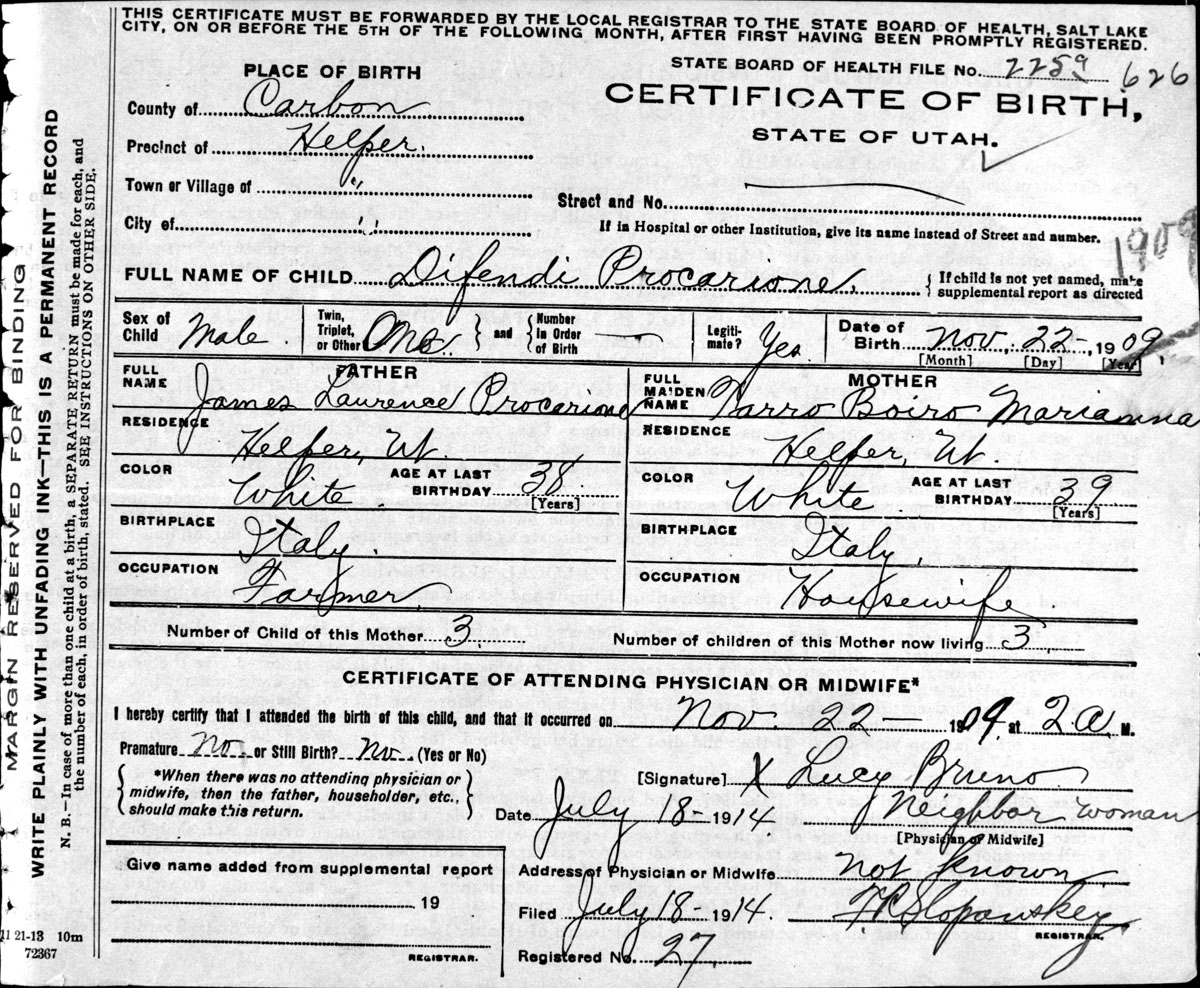 THIS CERTIFICATE MUST BE FORWARDED BY THE LOCAL REGISTRAR TO THE STATE BOARD OF HEALTH, SALT LAKE
CITY, ON OR BEFORE THE 5TH OF THE FOLLOWING MONTH, AFTER FIRST HAVING BEEN PROMPTLY REGISTERED.
PLACE OF BIRTH
STATE BOARD OF HEALTH FILE No. 2259 626
County of Carbon
CERTIFICATE OF BIRTH,
STATE OF UTAH.
Precinct of Helper.
Town or Village of "
Street and No.
City of "
If in Hospital or other Institution, give its name instead of Street and number.
1909
FULL NAME OF CHILD Difendi Procarione. { If child is not yet named, make
supplemental report as directed
Sex of Child Male. Twin, Triplet, or Other One } and { Number in Order of Birth Legiti-mate? Yes Date of Birth Nov. 22-, 1909,
[Month] [Day] [Year]
FATHER
MOTHER
FULL NAME James Laurence Procarione
FULL MAIDEN NAME Parro Boiro Marianna
RESIDENCE Helper, Ut.
RESIDENCE Helper, Ut.
COLOR White AGE AT LAST BIRTHDAY 38 [Years]
COLOR White AGE AT LAST BIRTHDAY 39 [Years]
BIRTHPLACE Italy.
BIRTHPLACE Italy.
OCCUPATION Farmer.
OCCUPATION Housewife
Number of Child of this Mother 3. Number of children of this Mother now living 3.
CERTIFICATE OF ATTENDING PHYSICIAN OR MIDWIFE*
I hereby certify that I attended the birth of this child, and that it occurred on Nov. 22- 1909. at 2 a. M.
Premature No or Still Birth? No. (Yes or No)
{ *When there was no attending physician or
midwife, then the father, householder, etc.,
should make this return. }
[Signature] X Lucy Bruno
Date July 18-1914 Neighbor woman
[Physician or Midwife]
Give name added from supplemental report
19
REGISTRAR.
Address of Physician or Midwife not known.
Filed July 18-1914. F.R. Slopanskey
REGISTRAR.
Registered No. 27.
MARGIN RESERVED FOR BINDING
WRITE PLAINLY WITH UNFADING INK—THIS IS A PERMANENT RECORD
N. B.—In case of more than one child at a birth, a SEPARATE RETURN must be made for each, and
the number of each, in order of birth, stated. SEE INSTRUCTIONS ON OTHER SIDE.
11 21-13 10m
72367